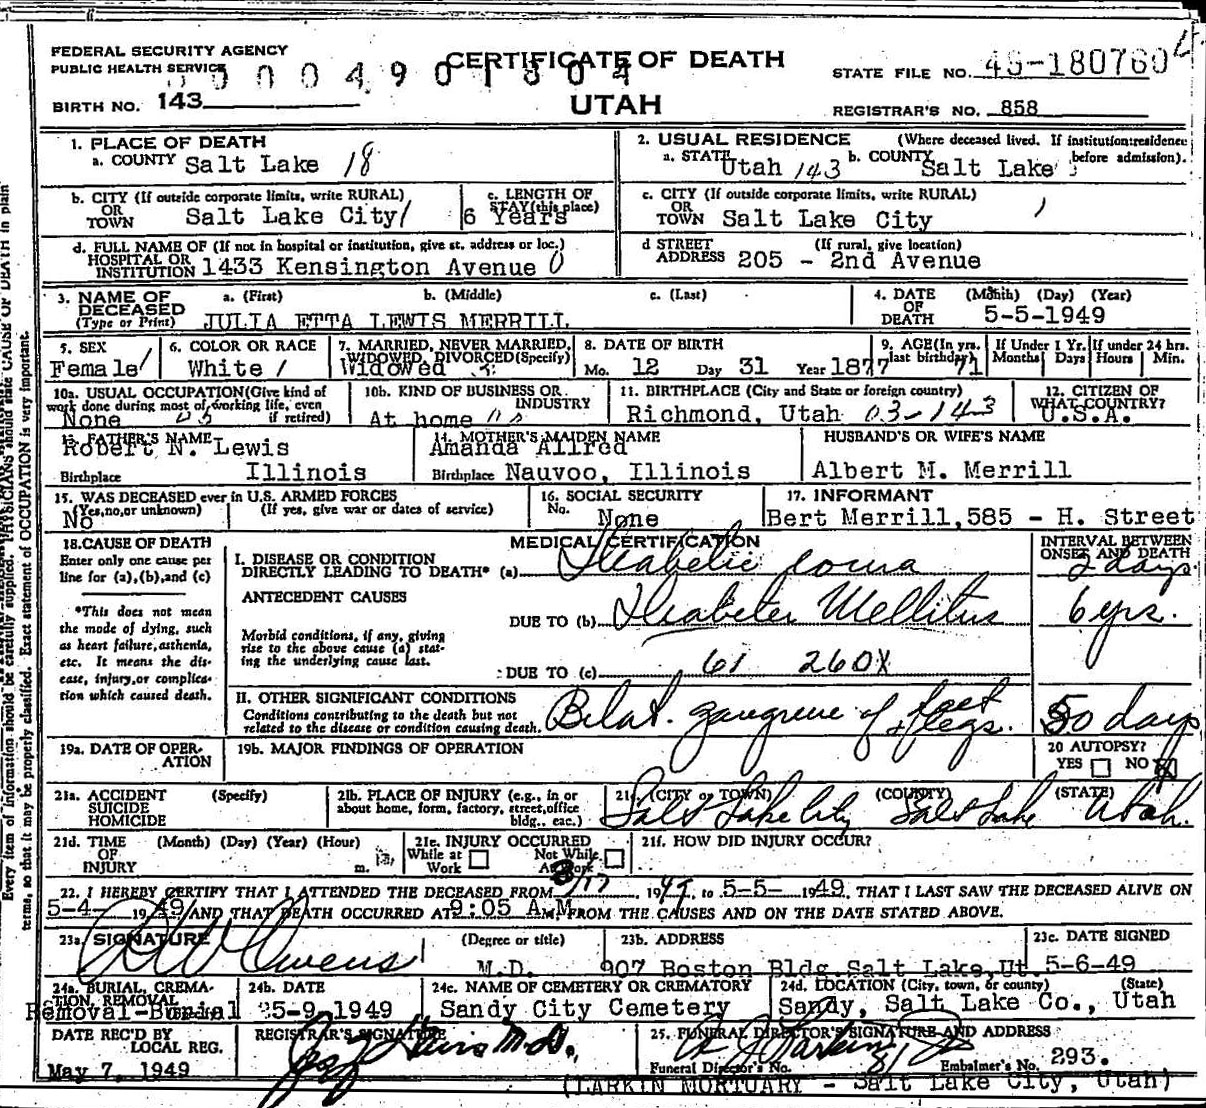 FEDERAL SECURITY AGENCY
PUBLIC HEALTH SERVICE
CERTIFICATE OF DEATH
UTAH
STATE FILE NO. 49-180760
BIRTH NO. 143
REGISTRAR'S NO. 858
1. PLACE OF DEATH
a. COUNTY Salt Lake 18
2. USUAL RESIDENCE (Where deceased lived. If institution:residence before admission).
a. STATE Utah 143 b. COUNTY Salt Lake
b. CITY (If outside corporate limits, write RURAL)
OR
TOWN Salt Lake City
c. LENGTH OF
STAY(this place)
6 Years
c. CITY (If outside corporate limits, write RURAL)
OR
TOWN Salt Lake City
d. FULL NAME OF (If not in hospital or institution, give st. address or loc.)
HOSPITAL OR
INSTITUTION 1433 Kensington Avenue 0
d STREET (If rural, give location)
ADDRESS 205 - 2nd Avenue
3. NAME OF a. (First) b. (Middle) c. (Last)
DECEASED
(Type or Print) JULIA ETTA LEWIS MERRILL
4. DATE (Month) (Day) (Year)
OF
DEATH 5-5-1949
5. SEX
Female
6. COLOR OR RACE
White
7. MARRIED, NEVER MARRIED,
WIDOWED, DIVORCED(Specify)
Widowed
8. DATE OF BIRTH
Mo. 12 Day 31 Year 1877
9. AGE(In yrs. last birthday) 71
If Under 1 Yr. Months Days
If under 24 hrs. Hours Min.
10a. USUAL OCCUPATION(Give kind of
work done during most of working life, even
if retired)
None
10b. KIND OF BUSINESS OR
INDUSTRY
At home
11. BIRTHPLACE (City and State or foreign country)
Richmond, Utah 03-143
12. CITIZEN OF
WHAT COUNTRY?
U.S.A.
13. FATHER'S NAME
Robert N. Lewis
Birthplace Illinois
14. MOTHER'S MAIDEN NAME
Amanda Allred
Birthplace Nauvoo, Illinois
HUSBAND'S OR WIFE'S NAME
Albert M. Merrill
15. WAS DECEASED ever in U.S. ARMED FORCES
(Yes,no,or unknown) (If yes, give war or dates of service)
No
16. SOCIAL SECURITY
No. None
17. INFORMANT
Bert Merrill,585 - H. Street
18.CAUSE OF DEATH
Enter only one cause per
line for (a),(b),and (c)
*This does not mean
the mode of dying, such
as heart failure,asthenia,
etc. It means the dis-
ease, injury,or complica-
tion which caused death.
MEDICAL CERTIFICATION
I. DISEASE OR CONDITION
DIRECTLY LEADING TO DEATH* (a) Diabetic coma
INTERVAL BETWEEN
ONSET AND DEATH
2 days
ANTECEDENT CAUSES
DUE TO (b) Diabetes Mellitus 6 yrs.
Morbid conditions, if any, giving
rise to the above cause (a) stat-
ing the underlying cause last.
DUE TO (c) 61 260X
II. OTHER SIGNIFICANT CONDITIONS
Conditions contributing to the death but not
related to the disease or condition causing death.
Bilat. gangrene of feet + legs. 50 days
19a. DATE OF OPER-
ATION
19b. MAJOR FINDINGS OF OPERATION
20 AUTOPSY?
YES NO X
21a. ACCIDENT (Specify)
SUICIDE
HOMICIDE
21b. PLACE OF INJURY (e.g., in or
about home, form, factory, street,office
bldg., eac.)
21c. (CITY or TOWN) (COUNTY) (STATE)
Salt Lake City Salt Lake Utah.
21d. TIME (Month) (Day) (Year) (Hour)
OF
INJURY m.
21e. INJURY OCCURRED
While at Work
Not While At Work
21f. HOW DID INJURY OCCUR?
22. I HEREBY CERTIFY THAT I ATTENDED THE DECEASED FROM 3/17, 19, to 5-5- 1949, THAT I LAST SAW THE DECEASED ALIVE ON
5-4- 1949 AND THAT DEATH OCCURRED AT 9:05 A.M. FROM THE CAUSES AND ON THE DATE STATED ABOVE.
23a. SIGNATURE (Degree or title)
Owens M.D.
23b. ADDRESS
907 Boston Bldg. Salt Lake,Ut.
23c. DATE SIGNED
5-6-49
24a. BURIAL, CREMA-
TION, REMOVAL
Removal-Burial
24b. DATE
5-9-1949
24c. NAME OF CEMETERY OR CREMATORY
Sandy City Cemetery
24d. LOCATION (City, town, or county) (State)
Sandy, Salt Lake Co., Utah
DATE REC'D BY
LOCAL REG.
May 7, 1949
REGISTRAR'S SIGNATURE
M.D.
25. FUNERAL DIRECTOR'S SIGNATURE AND ADDRESS
Funeral Director's No. 81 Embalmer's No. 293.
(LARKIN MORTUARY - Salt Lake City, Utah)